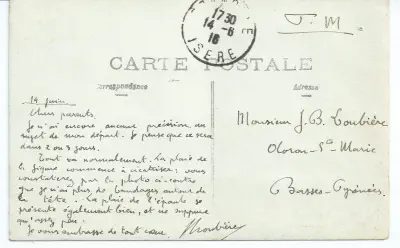 17 30
14-6
16
ISERE
F. M.
CARTE POSTALE
Correspondance
Adresse
14 juin
Chers parents,
Je n'ai encore aucune précision au
sujet de mon départ. Je pense que ce sera
dans 2 ou 3 jours.
Tout va normalement. La plaie de
la figure commence à cicatriser : vous
constaterez par la photo ci-contre
que je n'ai plus de bandages autour de
la tête. La plaie de l'épaule se
présente également bien, et ne suppure
qu'assez peu.
Je vous embrasse de tout cœur.
Monsieur J. B. Loubière
Oloron-Ste-Marie
Basses-Pyrénées.